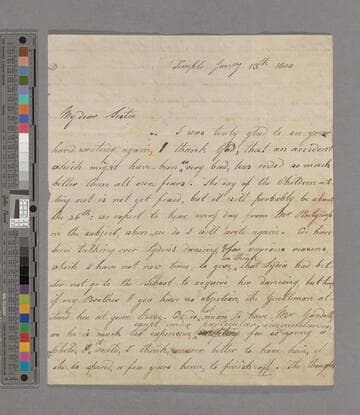 Temple Jany 13th 1800
My dear Sister
I was truly glad to see your
hand writing again, I thank God, that an accident
which might have been so very bad, has ended so much
better than all our fears. The day of the Children
ting not is not yet fixed, but it will probably be about
the 26th, we expect to hear every day from Mr
the subject, when we do I will write again. We have
been talking over Lydia's dancing, & for various reasons,
which I have not now time to give, we think that Lydia had bet
ter not go to the School to acquire her dancing, but
if my Brother & you have no objection the Gentleman
at your House. to have Mr
except under particular circumstances,
as he is much too expensive for so young a
Child, & I think better to have him, if
she be spared, a few years hence, to finish off. The thoughts